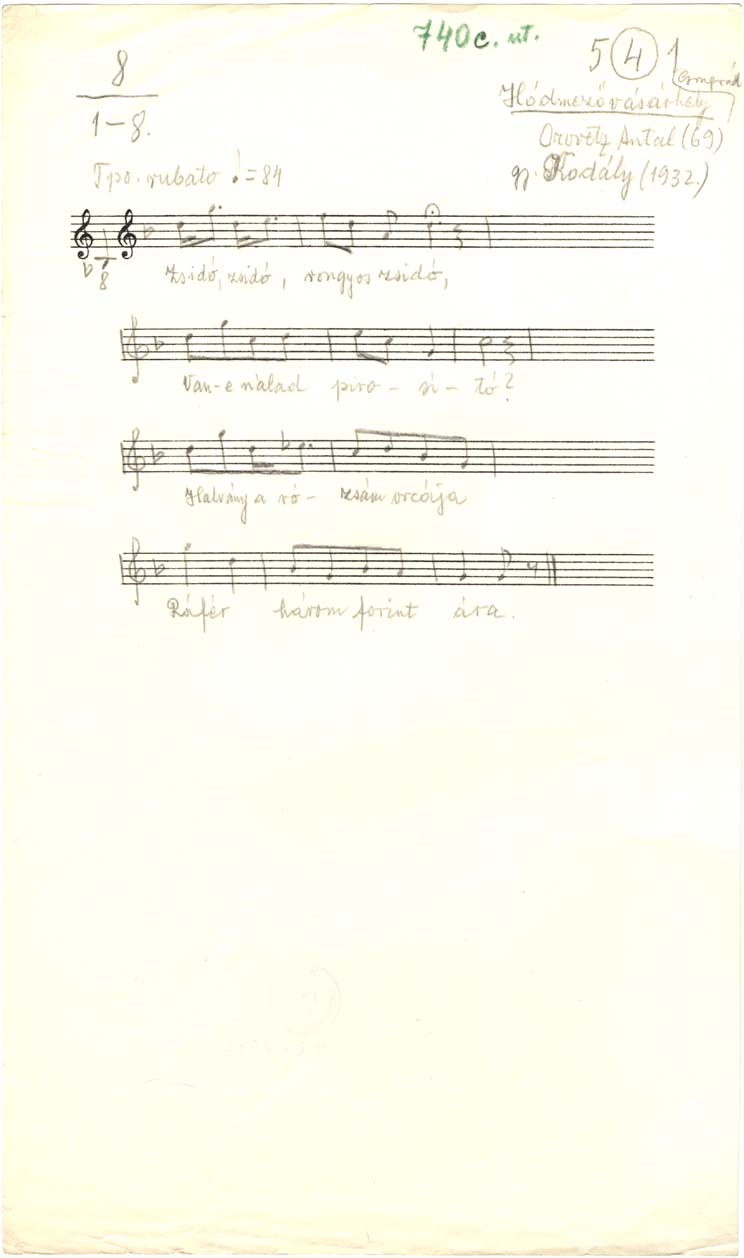 740c. ut.
8
1-8.
5 4 1
Csongrád
Hódmezővásárhely
Orovetz Antal (69)
gy. Kodály (1932.)
Tpo. rubato ♩=84
8
Zsidó, zsidó, rongyos zsidó,
Van-e nálad piro - sí - tó?
Halvány a ró - zsám orcája
Ráfér három forint ára.